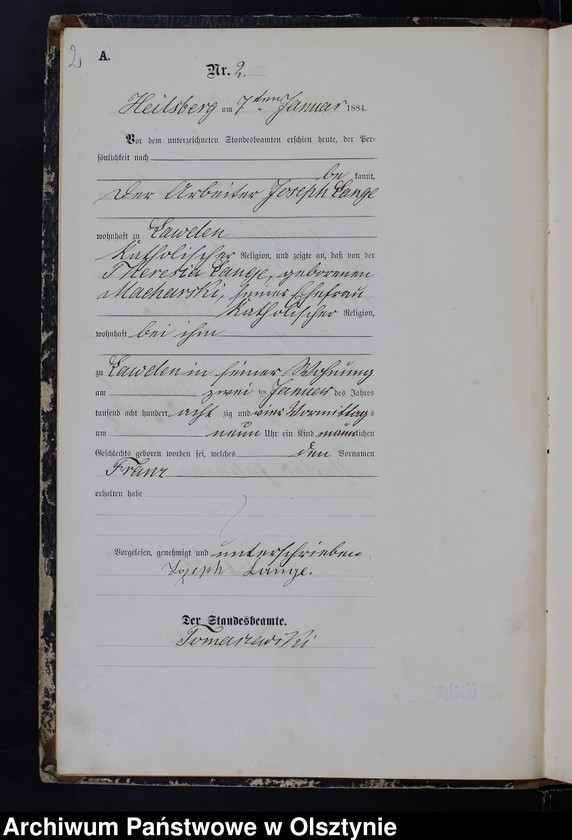 2
A.
Nr. 2.
Heilsberg am 7ten Januar 1884.
Vor dem unterzeichneten Standesbeamten erschien heute, der Per-
sönlichkeit nach
be kannt,
Der Arbeiter Joseph Lange
wohnhaft zu Lawden
Katholischer Religion, und zeigte an, daß von der
Theresia Lange, geborenen
Macharski, seiner Ehefrau
Katholischer Religion,
wohnhaft bei ihm
zu Lawden in seiner Wohnung
am zwei ten Januar des Jahres
tausend acht hundert acht zig und vier Vormittags
um neun Uhr ein Kind männlichen
Geschlechts geboren worden sei, welches den Vornamen
Franz
erhalten habe
Vorgelesen, genehmigt und unterschrieben
Joseph Lange.
Der Standesbeamte.
Tomaszewski
Archiwum Państwowe w Olsztynie